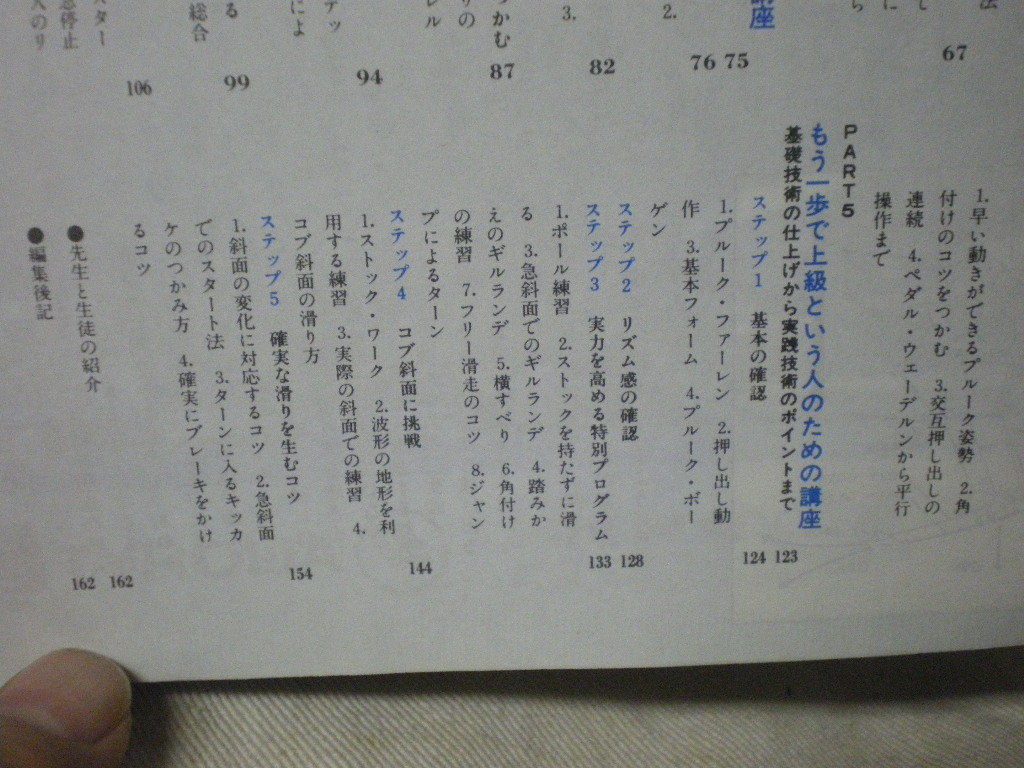 法
67
2.
3.
76 75
82
87
94
99
106
1.早い動きができるプルーク姿勢　2.角
付けのコツをつかむ　3.交互押し出しの
連続　4.ペダル・ウェーデルンから平行
操作まで
PART5
もう一歩で上級という人のための講座
基礎技術の仕上げから実践技術のポイントまで
123
ステップ1　基本の確認
124
1.プルーク・ファーレン　2.押し出し動
作　3.基本フォーム　4.プルーク・ボー
ゲン
ステップ2　リズム感の確認
128
ステップ3　実力を高める特別プログラム
133
1.ポール練習　2.ストックを持たずに滑
る　3.急斜面でのギルランデ　4.踏みか
えのギルランデ　5.横すべり　6.角付け
の練習　7.フリー滑走のコツ　8.ジャン
プによるターン
ステップ4　コブ斜面に挑戦
144
1.ストック・ワーク　2.波形の地形を利
用する練習　3.実際の斜面での練習　4.
コブ斜面の滑り方
ステップ5　確実な滑りを生むコツ
154
1.斜面の変化に対応するコツ　2.急斜面
でのスタート法　3.ターンに入るキッカ
ケのつかみ方　4.確実にブレーキをかけ
るコツ
●先生と生徒の紹介
162
●編集後記
162